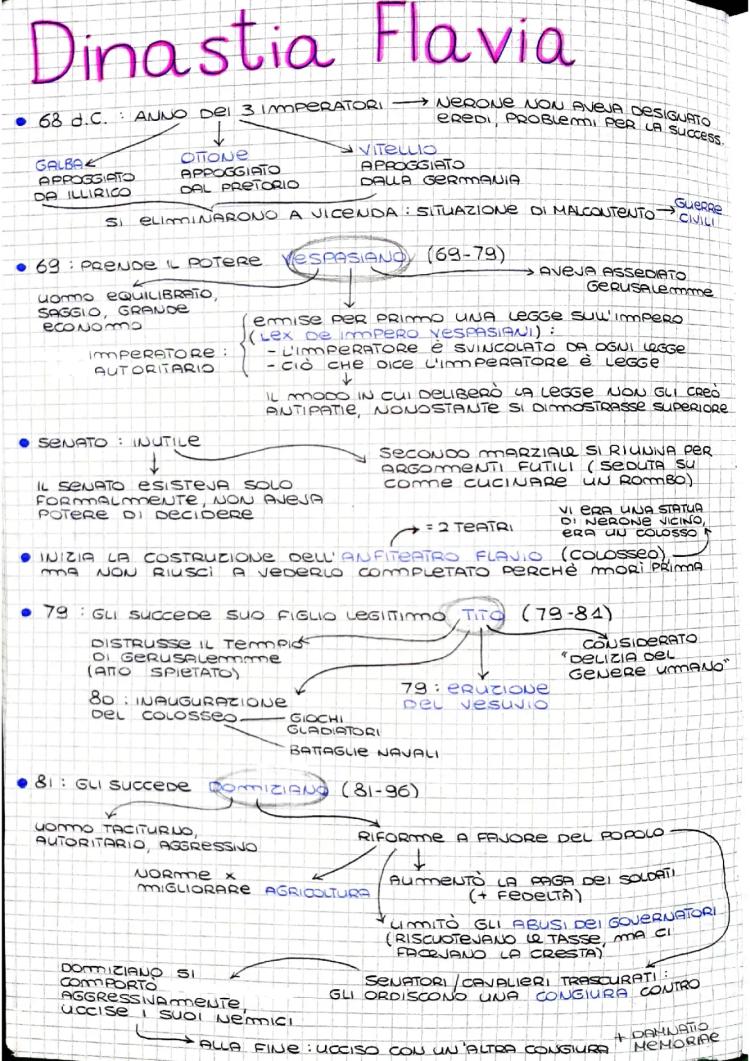 Dinastia Flavia
• 68 d.C. : ANNO DEI 3 IMPERATORI → NERONE NON AVEVA DESIGNATO
EREDI, PROBLEMI PER LA SUCCESS.
GALBA
APPOGGIATO
DA ILLIRICO
OTTONE
APPOGGIATO
DAL PRETORIO
VITELLIO
APPOGGIATO
DALLA GERMANIA
SI ELIMINARONO A VICENDA : SITUAZIONE DI MALCONTENTO → GUERRE
CIVILI
• 69 : PRENDE IL POTERE VESPASIANO (69-79)
AVEVA ASSEDIATO
GERUSALEMME
UOMO EQUILIBRATO,
SAGGIO, GRANDE
ECONOMO
IMPERATORE :
AUTORITARIO
EMISE PER PRIMO UNA LEGGE SULL'IMPERO
(LEX DE IMPERO VESPASIANI) :
- L'IMPERATORE È SVINCOLATO DA OGNI LEGGE
- CIÒ CHE DICE L'IMPERATORE È LEGGE
IL MODO IN CUI DELIBERÒ LA LEGGE NON GLI CREÒ
ANTIPATIE, NONOSTANTE SI DIMOSTRASSE SUPERIORE
• SENATO : INUTILE
IL SENATO ESISTEVA SOLO
FORMALMENTE, NON AVEVA
POTERE DI DECIDERE
SECONDO MARZIALE SI RIUNIVA PER
ARGOMENTI FUTILI (SEDUTA SU
COME CUCINARE UN ROMBO)
= 2 TEATRI
VI ERA UNA STATUA
DI NERONE VICINO,
ERA UN COLOSSO
• INIZIA LA COSTRUZIONE DELL'ANFITEATRO FLAVIO (COLOSSEO),
MA NON RIUSCÌ A VEDERLO COMPLETATO PERCHÈ MORÌ PRIMA
• 79 : GLI SUCCEDE SUO FIGLIO LEGITTIMO TITO (79-81)
DISTRUSSE IL TEMPIO
DI GERUSALEMME
(ATTO SPIETATO)
CONSIDERATO
"DELIZIA DEL
GENERE UMANO"
79 : ERUZIONE
DEL VESUVIO
80 : INAUGURAZIONE
DEL COLOSSEO
GIOCHI
GLADIATORI
BATTAGLIE NAVALI
• 81 : GLI SUCCEDE DOMIZIANO (81-96)
UOMO TACITURNO,
AUTORITARIO, AGGRESSIVO
RIFORME A FAVORE DEL POPOLO
NORME x
MIGLIORARE AGRICOLTURA
AUMENTÒ LA PAGA DEI SOLDATI
(+ FEDELTÀ)
LIMITÒ GLI ABUSI DEI GOVERNATORI
(RISCUOTEVANO LE TASSE, MA CI
FACEVANO LA CRESTA)
SENATORI/CAVALIERI TRASCURATI :
GLI ORDISCONO UNA CONGIURA CONTRO
DOMIZIANO SI
COMPORTÒ
AGGRESSIVAMENTE,
UCCISE I SUOI NEMICI
ALLA FINE : UCCISO CON UN'ALTRA CONGIURA + DAMNATIO
MEMORIAE